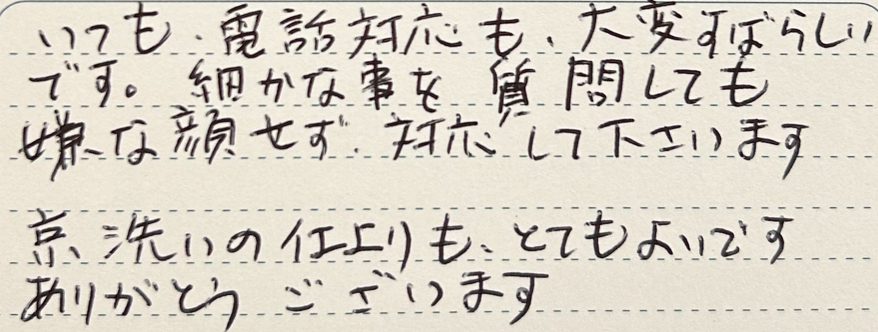 いつも、電話対応も、大変すばらしい
です。細かな事を質問しても
嫌な顔せず、対応して下さいます
京洗いの仕上りも、とてもよいです
ありがとうございます